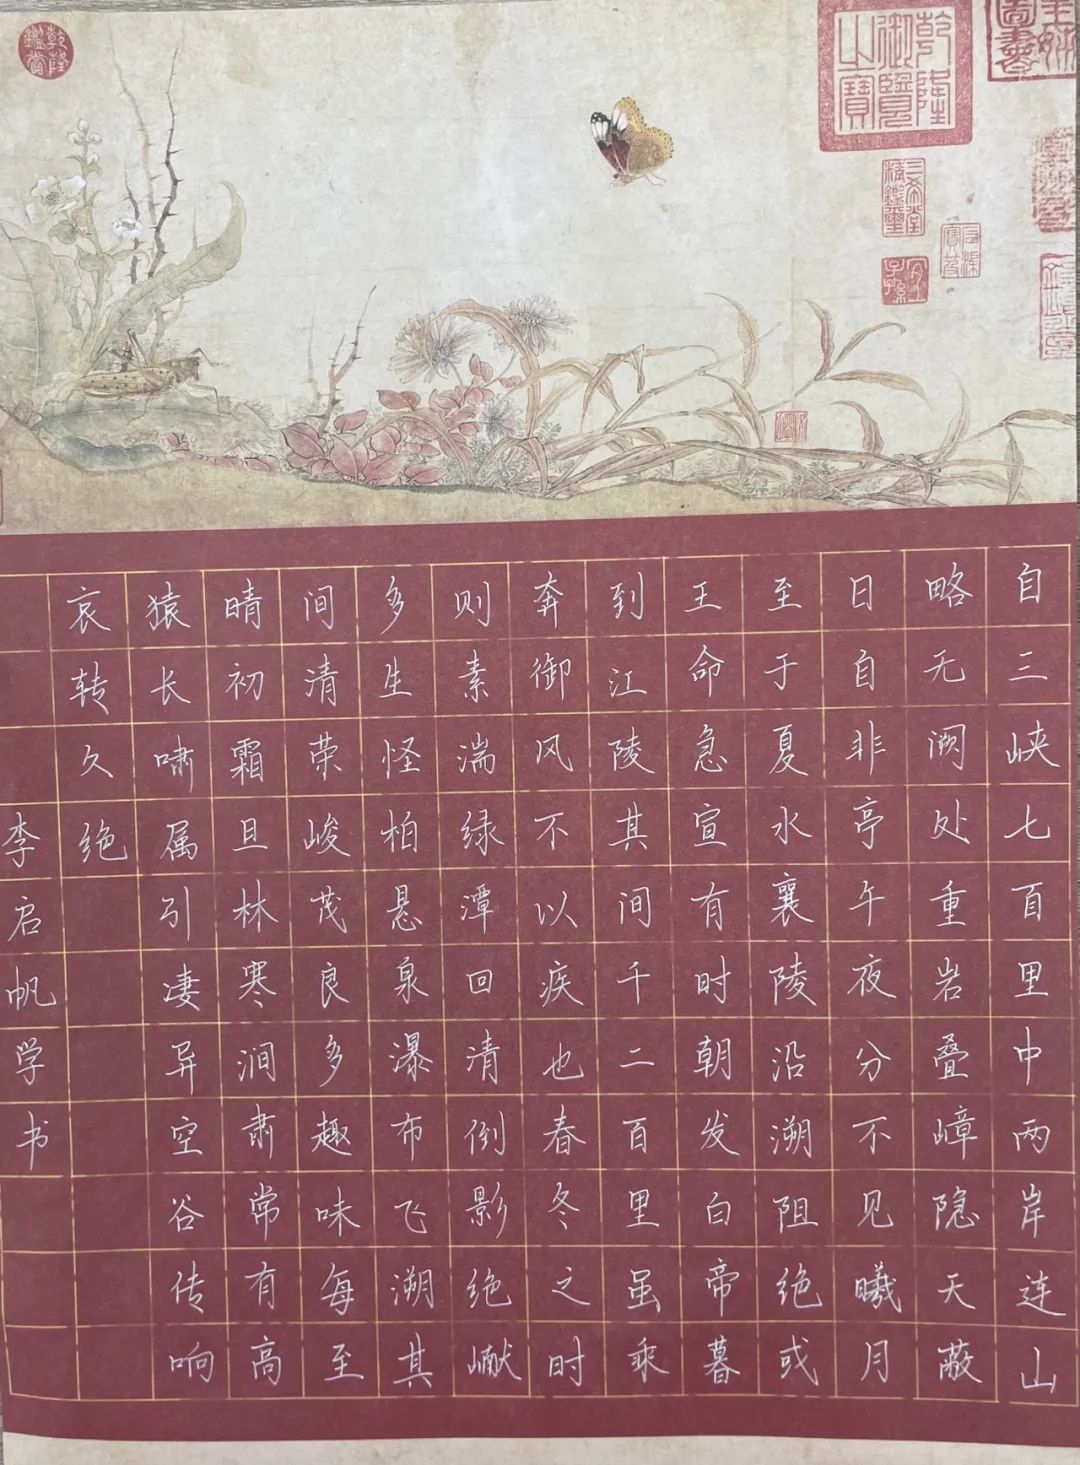 乾隆鑑賞
乾隆御覽之寶
三希堂精鑑璽
宜子孫
自三峡七百里中两岸连山
略无阙处重岩叠嶂隐天蔽
日自非亭午夜分不见曦月
至于夏水襄陵沿溯阻绝或
王命急宣有时朝发白帝暮
到江陵其间千二百里虽乘
奔御风不以疾也春冬之时
则素湍绿潭回清倒影绝𪩘
多生怪柏悬泉瀑布飞溯其
间清荣峻茂良多趣味每至
晴初霜旦林寒涧肃常有高
猿长啸属引凄异空谷传响
哀转久绝
李启帆学书